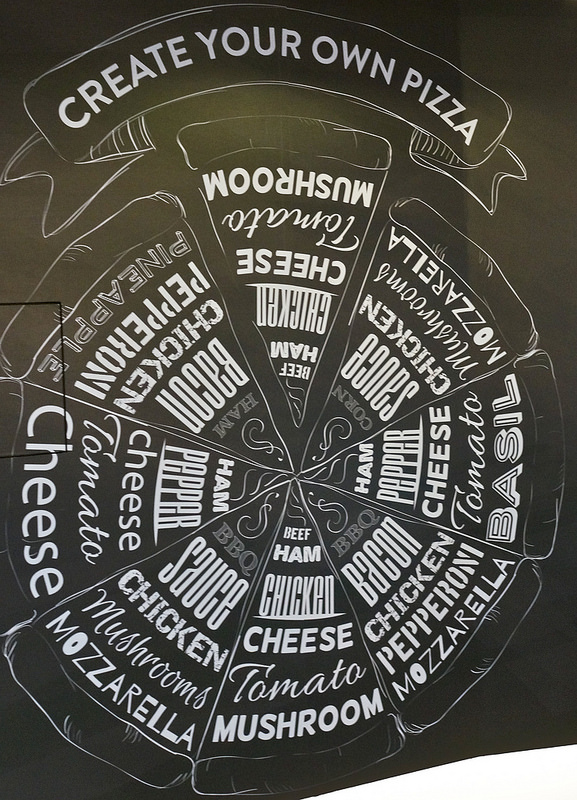 CREATE YOUR OWN PIZZA
MUSHROOM
Tomato
CHEESE
CHICKEN
HAM
BEEF
MOZZARELLA
Mushrooms
CHICKEN
SAUCE
CORN
BASIL
Tomato
CHEESE
PEPPER
HAM
BBQ
BACON
CHICKEN
PEPPERONI
MOZZARELLA
BEEF
HAM
CHICKEN
CHEESE
Tomato
MUSHROOM
BBQ
SAUCE
CHICKEN
Mushrooms
MOZZARELLA
HAM
PEPPER
cheese
Tomato
Cheese
PINEAPPLE
PEPPERONI
CHICKEN
BACON
HAM